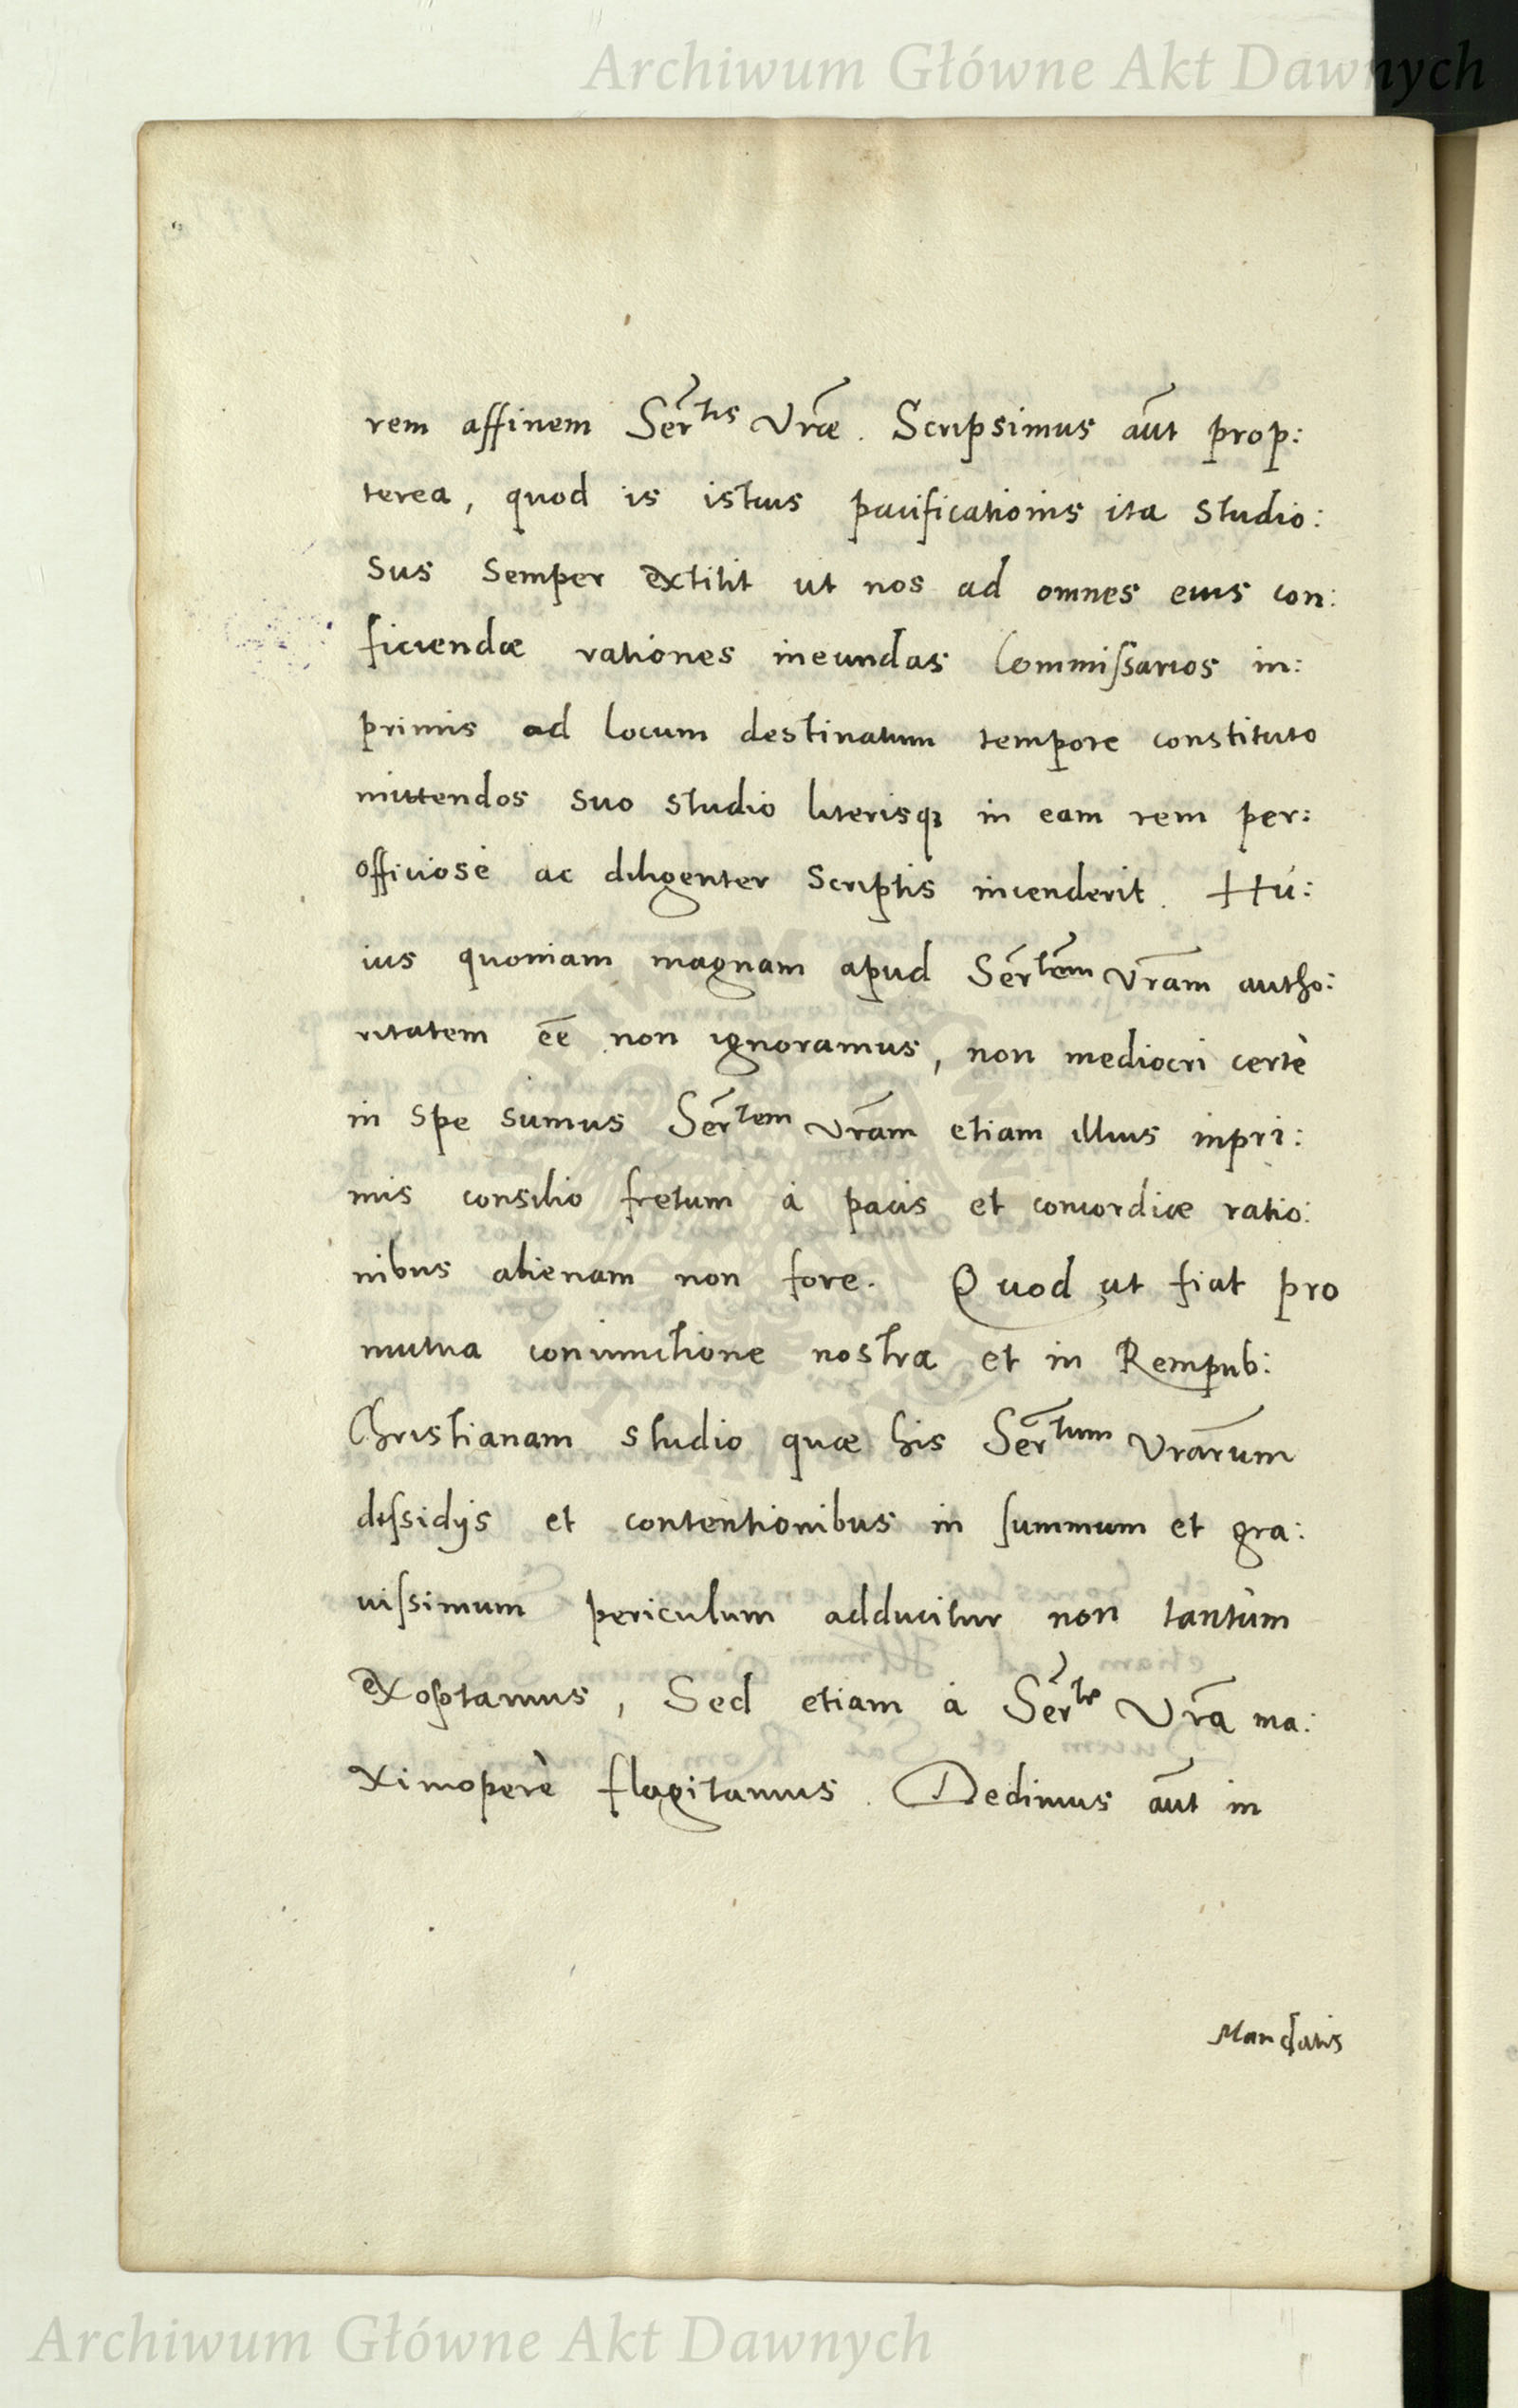 Archiwum Główne Akt Dawnych
rem affinem Ser^tis Vrae. Scripsimus aut prop:
terea, quod is istius pacificationis ita studio:
sus semper extitit ut nos ad omnes eius con:
ficiendæ rationes ineundas Commissarios in:
primis ad locum destinatum tempore constituto
mittendos suo studio literisq; in eam rem per:
officiosè ac diligenter scriptis incenderit. Hú:
ius quoniam magnam apud Ser^tem Vram autho:
ritatem ee non ignoramus, non mediocri certè
in spe sumus Ser^tem Vram etiam illius inpri:
mis consilio fretum à pacis et concordiæ ratio:
nibus alienam non fore. Quod ut fiat pro
mutua coniunctione nostra et in Rempub:
Christianam studio quæ his Ser^tum Vrarum
dissidijs et contentionibus in summum et gra:
uissimum periculum adducitur non tantùm
exoptamus, Sed etiam à Ser^te Vra ma:
ximoperè flagitamus. Dedimus aut in
Mandatis
Archiwum Główne Akt Dawnych